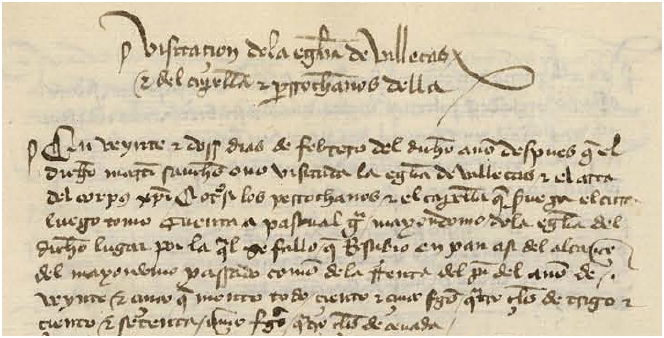 Visitacion dela eglia de Vallecas
& del capellan & perrochanos della
En veynte & doss dias de febrero del dicho año despues q̄ el
dicho martī sanches ouo visitada la eglia de vallecas & el arca
del corpus xp̄i los perrochanos & el capellā q̄
luego tomo cuenta a pascual gr̄a mayordomo dela eglia del
dicho lugar por la q̄l se fallo q̄ Resçibio en pan asi del alcançe
del mayordomo passado como dela Renta del pā del año de
veynte & cinco q̄ monto todo çiento & çinco fgs de trigo &
çiento & setenta fgs de çeuada